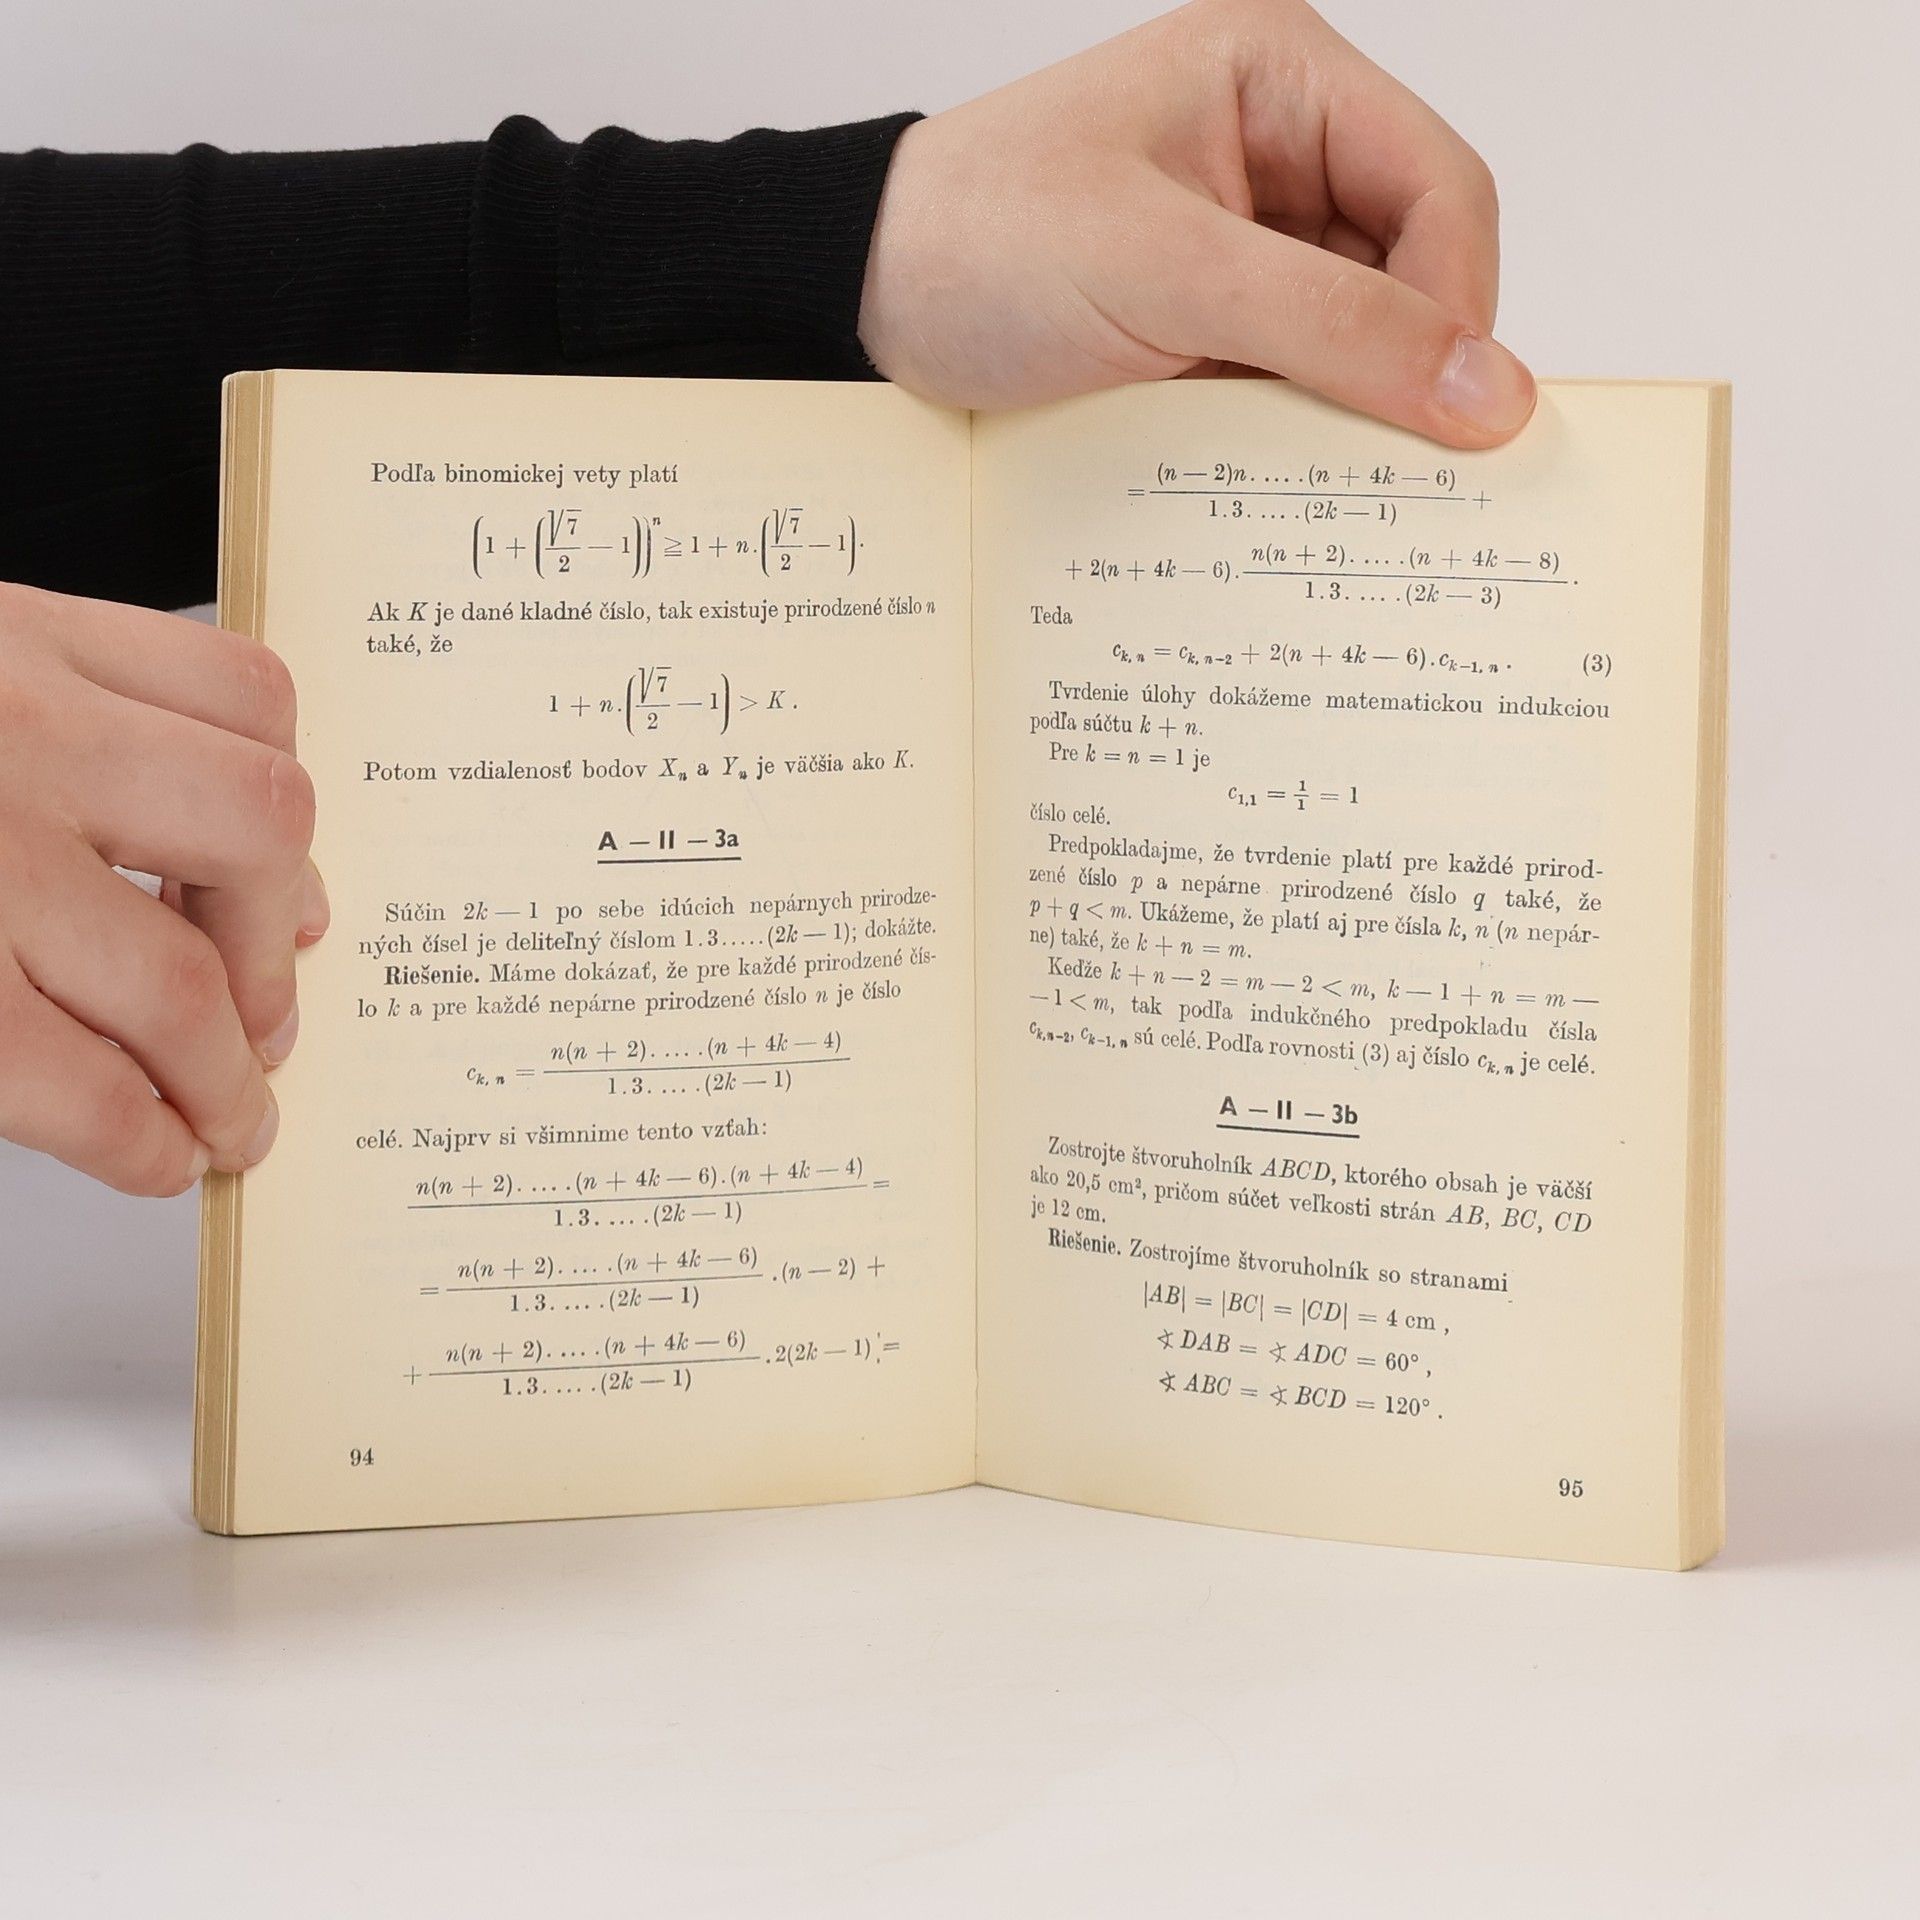 Podľa binomickej vety platí
(1 + (√7/2 — 1))ⁿ ≧ 1 + n.(√7/2 — 1).
Ak K je dané kladné číslo, tak existuje prirodzené číslo n
také, že
1 + n.(√7/2 — 1) > K.
Potom vzdialenosť bodov Xₙ a Yₙ je väčšia ako K.
A — II — 3a
Súčin 2k — 1 po sebe idúcich nepárnych prirodze-
ných čísel je deliteľný číslom 1.3.....(2k — 1); dokážte.
Riešenie. Máme dokázať, že pre každé prirodzené čís-
lo k a pre každé nepárne prirodzené číslo n je číslo
c_{k, n} = n(n + 2).....(n + 4k — 4) / 1.3.....(2k — 1)
celé. Najprv si všimnime tento vzťah:
n(n + 2).....(n + 4k — 6).(n + 4k — 4) / 1.3.....(2k — 1) =
= n(n + 2).....(n + 4k — 6) / 1.3.....(2k — 1) .(n — 2) +
+ n(n + 2).....(n + 4k — 6) / 1.3.....(2k — 1) .2(2k — 1) =
94
= (n — 2)n.....(n + 4k — 6) / 1.3.....(2k — 1) +
+ 2(n + 4k — 6). n(n + 2).....(n + 4k — 8) / 1.3.....(2k — 3) .
Teda
c_{k, n} = c_{k, n−2} + 2(n + 4k — 6).c_{k−1, n} . (3)
Tvrdenie úlohy dokážeme matematickou indukciou
podľa súčtu k + n.
Pre k = n = 1 je
c_{1,1} = 1/1 = 1
číslo celé.
Predpokladajme, že tvrdenie platí pre každé prirod-
zené číslo p a nepárne prirodzené číslo q také, že
p + q < m. Ukážeme, že platí aj pre čísla k, n (n nepár-
ne) také, že k + n = m.
Keďže k + n — 2 = m — 2 < m, k — 1 + n = m —
— 1 < m, tak podľa indukčného predpokladu čísla
c_{k,n−2}, c_{k−1, n} sú celé. Podľa rovnosti (3) aj číslo c_{k, n} je celé.
A — II — 3b
Zostrojte štvoruholník ABCD, ktorého obsah je väčší
ako 20,5 cm², pričom súčet veľkosti strán AB, BC, CD
je 12 cm.
Riešenie. Zostrojíme štvoruholník so stranami
|AB| = |BC| = |CD| = 4 cm ,
∢ DAB = ∢ ADC = 60° ,
∢ ABC = ∢ BCD = 120° .
95